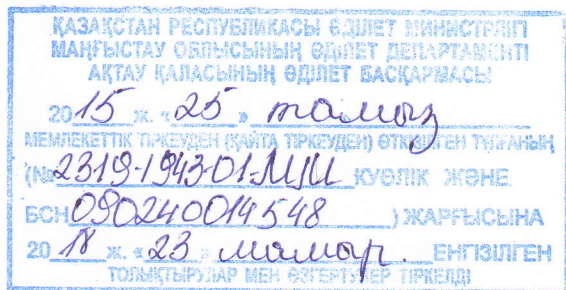 ҚАЗАҚСТАН РЕСПУБЛИКАСЫ ӘДІЛЕТ МИНИСТРЛІГІ
МАҢҒЫСТАУ ОБЛЫСЫНЫҢ ӘДІЛЕТ ДЕПАРТАМЕНТІ
АҚТАУ ҚАЛАСЫНЫҢ ӘДІЛЕТ БАСҚАРМАСЫ
20 15 ж. «25» тамыз
МЕМЛЕКЕТТІК ТІРКЕУДЕН (ҚАЙТА ТІРКЕУДЕН) ӨТКІЗІЛГЕН ТҰЛҒАНЫҢ
(№ 2319-1943-01-МЩИ КУӘЛІК ЖӘНЕ
БСН 090240014548 ) ЖАРҒЫСЫНА
20 18 ж. «23» мамыр. ЕНГІЗІЛГЕН
ТОЛЫҚТЫРУЛАР МЕН ӨЗГЕРТУЛЕР ТІРКЕЛДІ